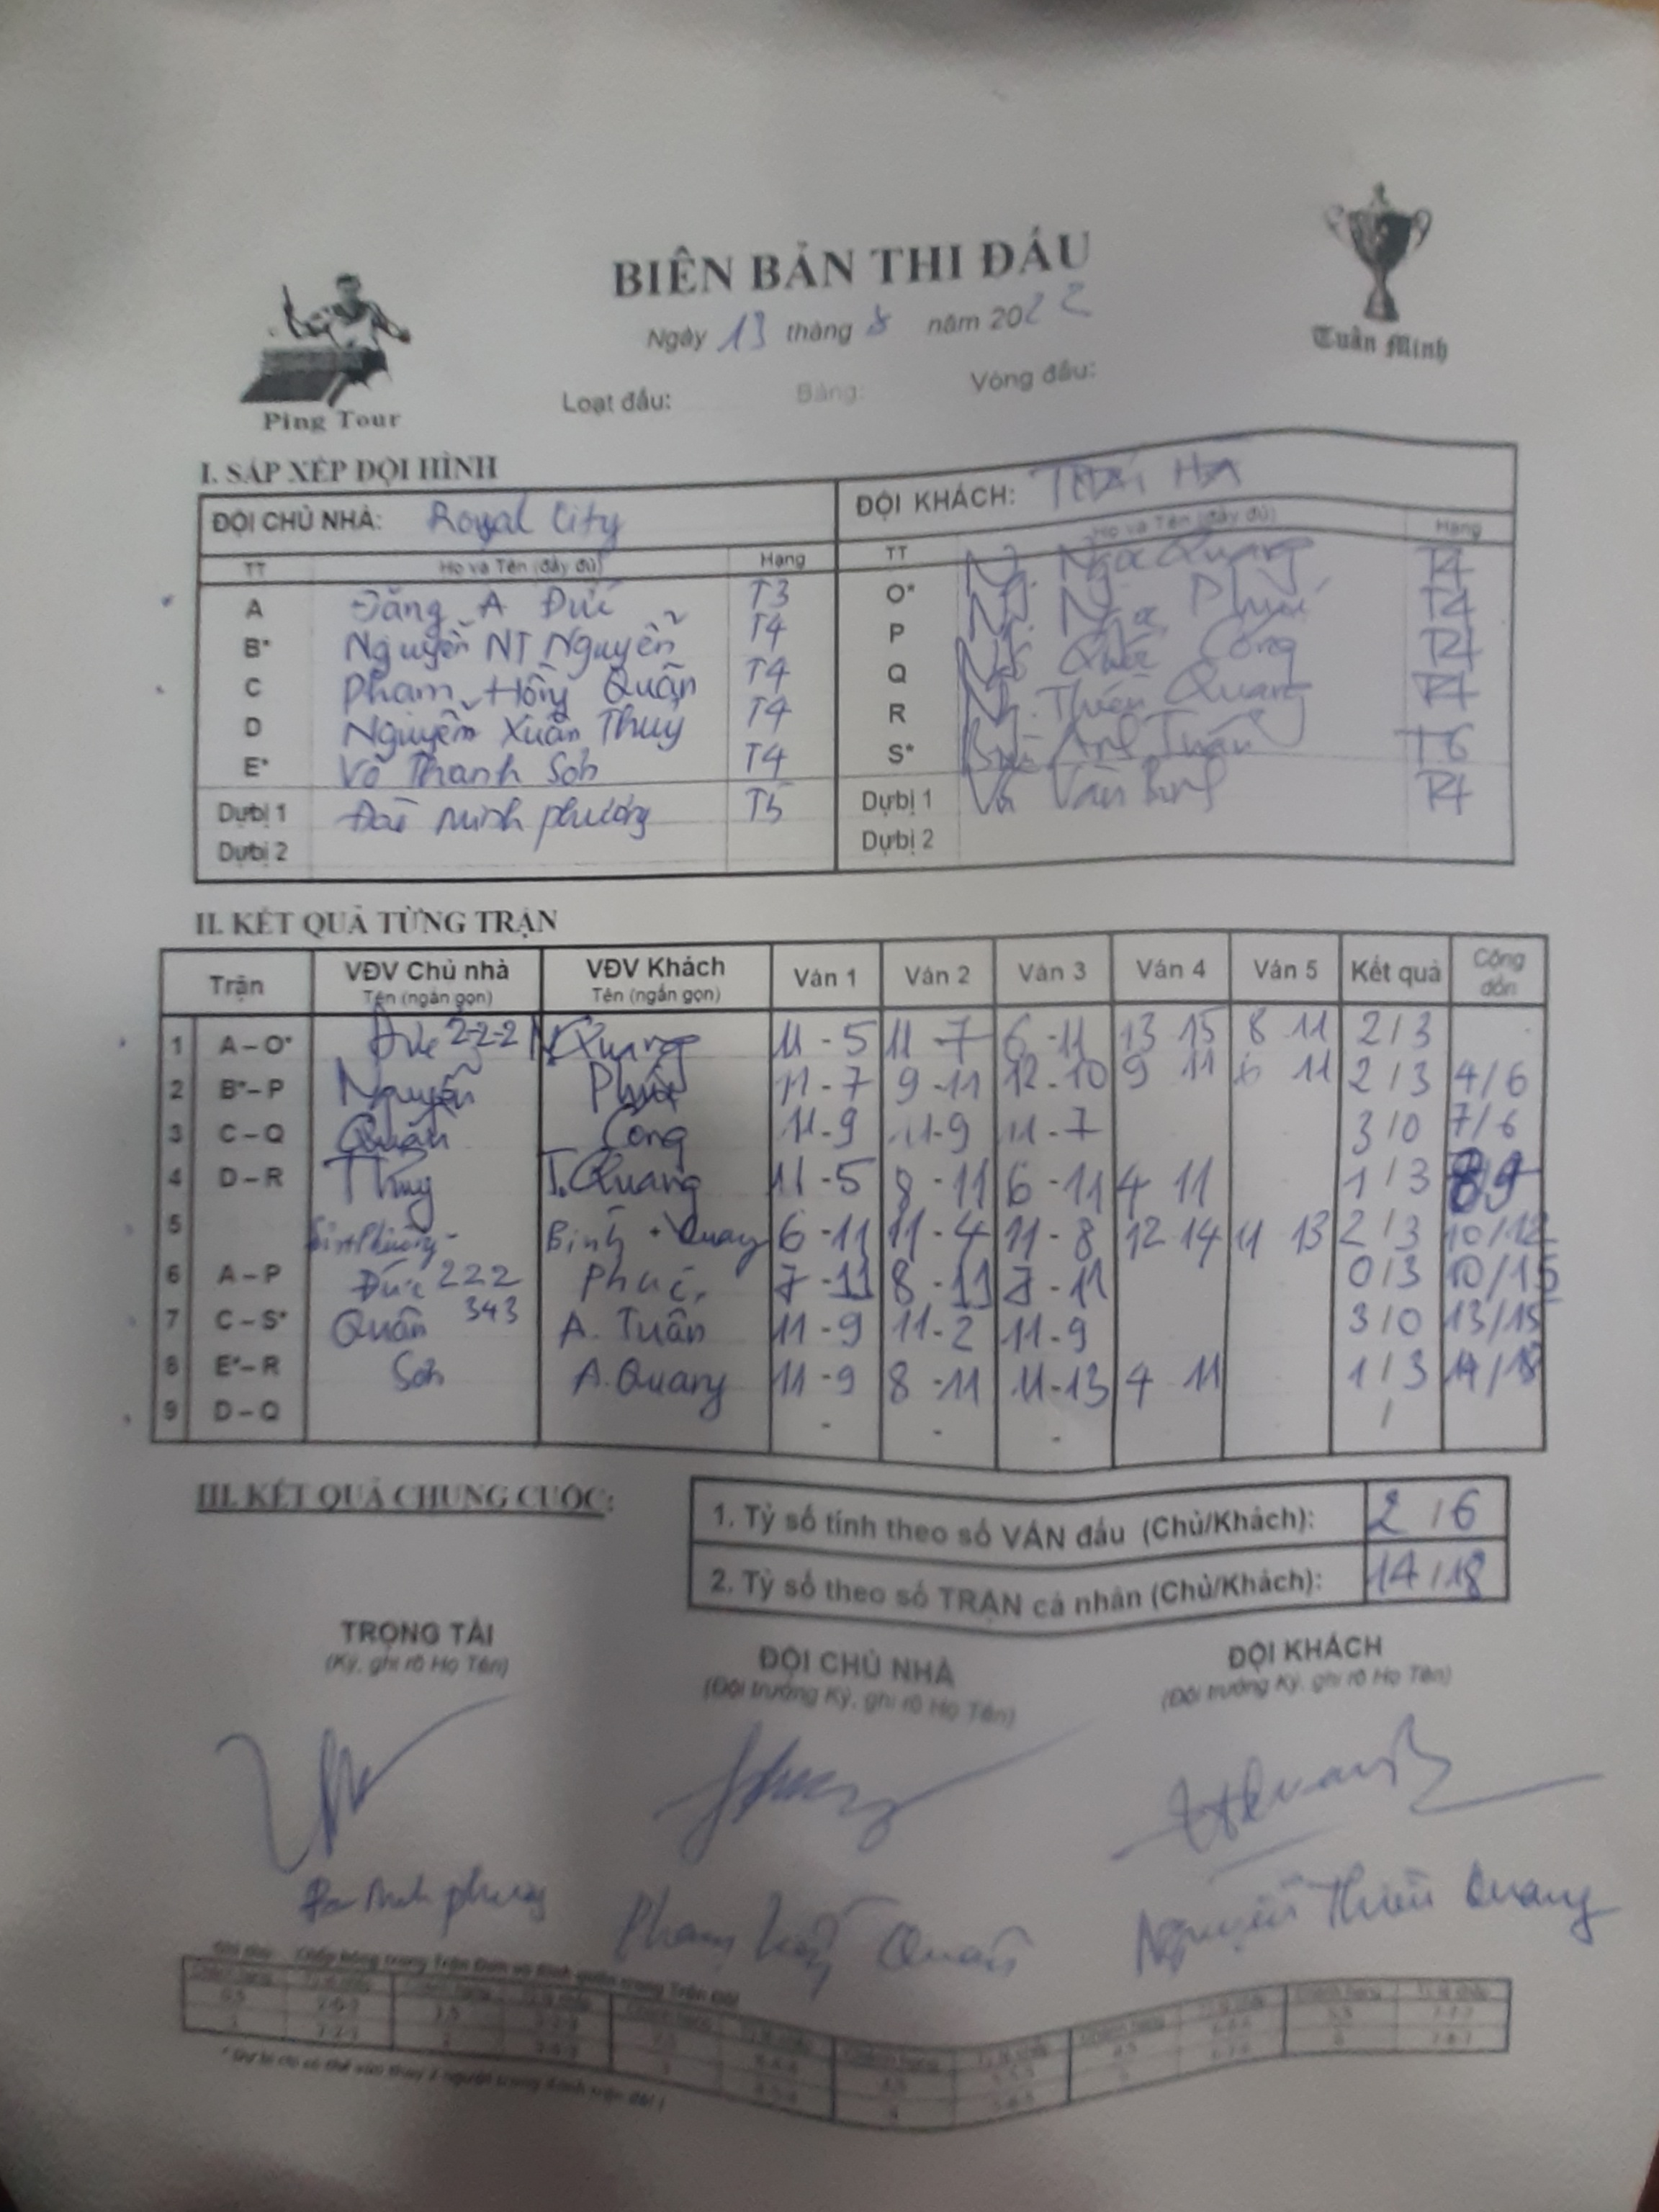 BIÊN BẢN THI ĐẤU
Ngày 13 tháng 8 năm 2022
Ping Tour
Tuấn Minh
Loạt đấu: Bảng: Vòng đấu:
I. SẮP XẾP ĐỘI HÌNH
ĐỘI CHỦ NHÀ: Royal City ĐỘI KHÁCH: THÁI HÀ
TT Họ và Tên (đầy đủ) Hạng TT Họ và Tên (đầy đủ) Hạng
A Đặng A Đức T3 O* Ng. Ngọc Quang T4
B* Nguyễn NT Nguyễn T4 P Ng. Ngọc Phúc T4
C Phạm Hồng Quân T4 Q Ng. Quốc Công T4
D Nguyễn Xuân Thuỷ T4 R Ng. Thiều Quang T4
E* Võ Thanh Sơn T4 S* Bùi Anh Tuấn T6
Dự bị 1 Đào Minh Phương T5 Dự bị 1 Vũ Văn T4
Dự bị 2 Dự bị 2
II. KẾT QUẢ TỪNG TRẬN
Trận VĐV Chủ nhà Tên (ngắn gọn) VĐV Khách Tên (ngắn gọn) Ván 1 Ván 2 Ván 3 Ván 4 Ván 5 Kết quả Cộng dồn
1 A – O* Đức 2-2-2 N Quang 11 - 5 11 - 7 6 - 11 13 15 8 11 2 / 3
2 B* – P Nguyễn Phúc 11 - 7 9 - 11 12 - 10 9 11 6 11 2 / 3 4 / 6
3 C – Q Quân Công 11 - 9 11 - 9 11 - 7 3 / 0 7 / 6
4 D – R Thuỷ T. Quang 11 - 5 8 - 11 6 - 11 4 11 1 / 3 8/9
5 Sơn+Phương - Bình + Quang 6 - 11 11 - 4 11 - 8 12 14 11 13 2 / 3 10/12
6 A – P Đức 222 Phúc 7 - 11 8 - 11 7 - 11 0 / 3 10/15
7 C – S* Quân 343 A. Tuấn 11 - 9 11 - 2 11 - 9 3 / 0 13/15
8 E* – R Sơn A. Quang 11 - 9 8 - 11 11 - 13 4 11 1 / 3 14/18
9 D – Q - - - /
III. KẾT QUẢ CHUNG CUỘC:
1. Tỷ số tính theo số VÁN đấu (Chủ/Khách): 2 / 6
2. Tỷ số theo số TRẬN cá nhân (Chủ/Khách): 14 / 18
TRỌNG TÀI ĐỘI CHỦ NHÀ ĐỘI KHÁCH
(Ký, ghi rõ Họ Tên) (Đội trưởng Ký, ghi rõ Họ Tên) (Đội trưởng Ký, ghi rõ Họ Tên)
Đào Minh Phương Phạm Hồng Quân Nguyễn Thiều Quang